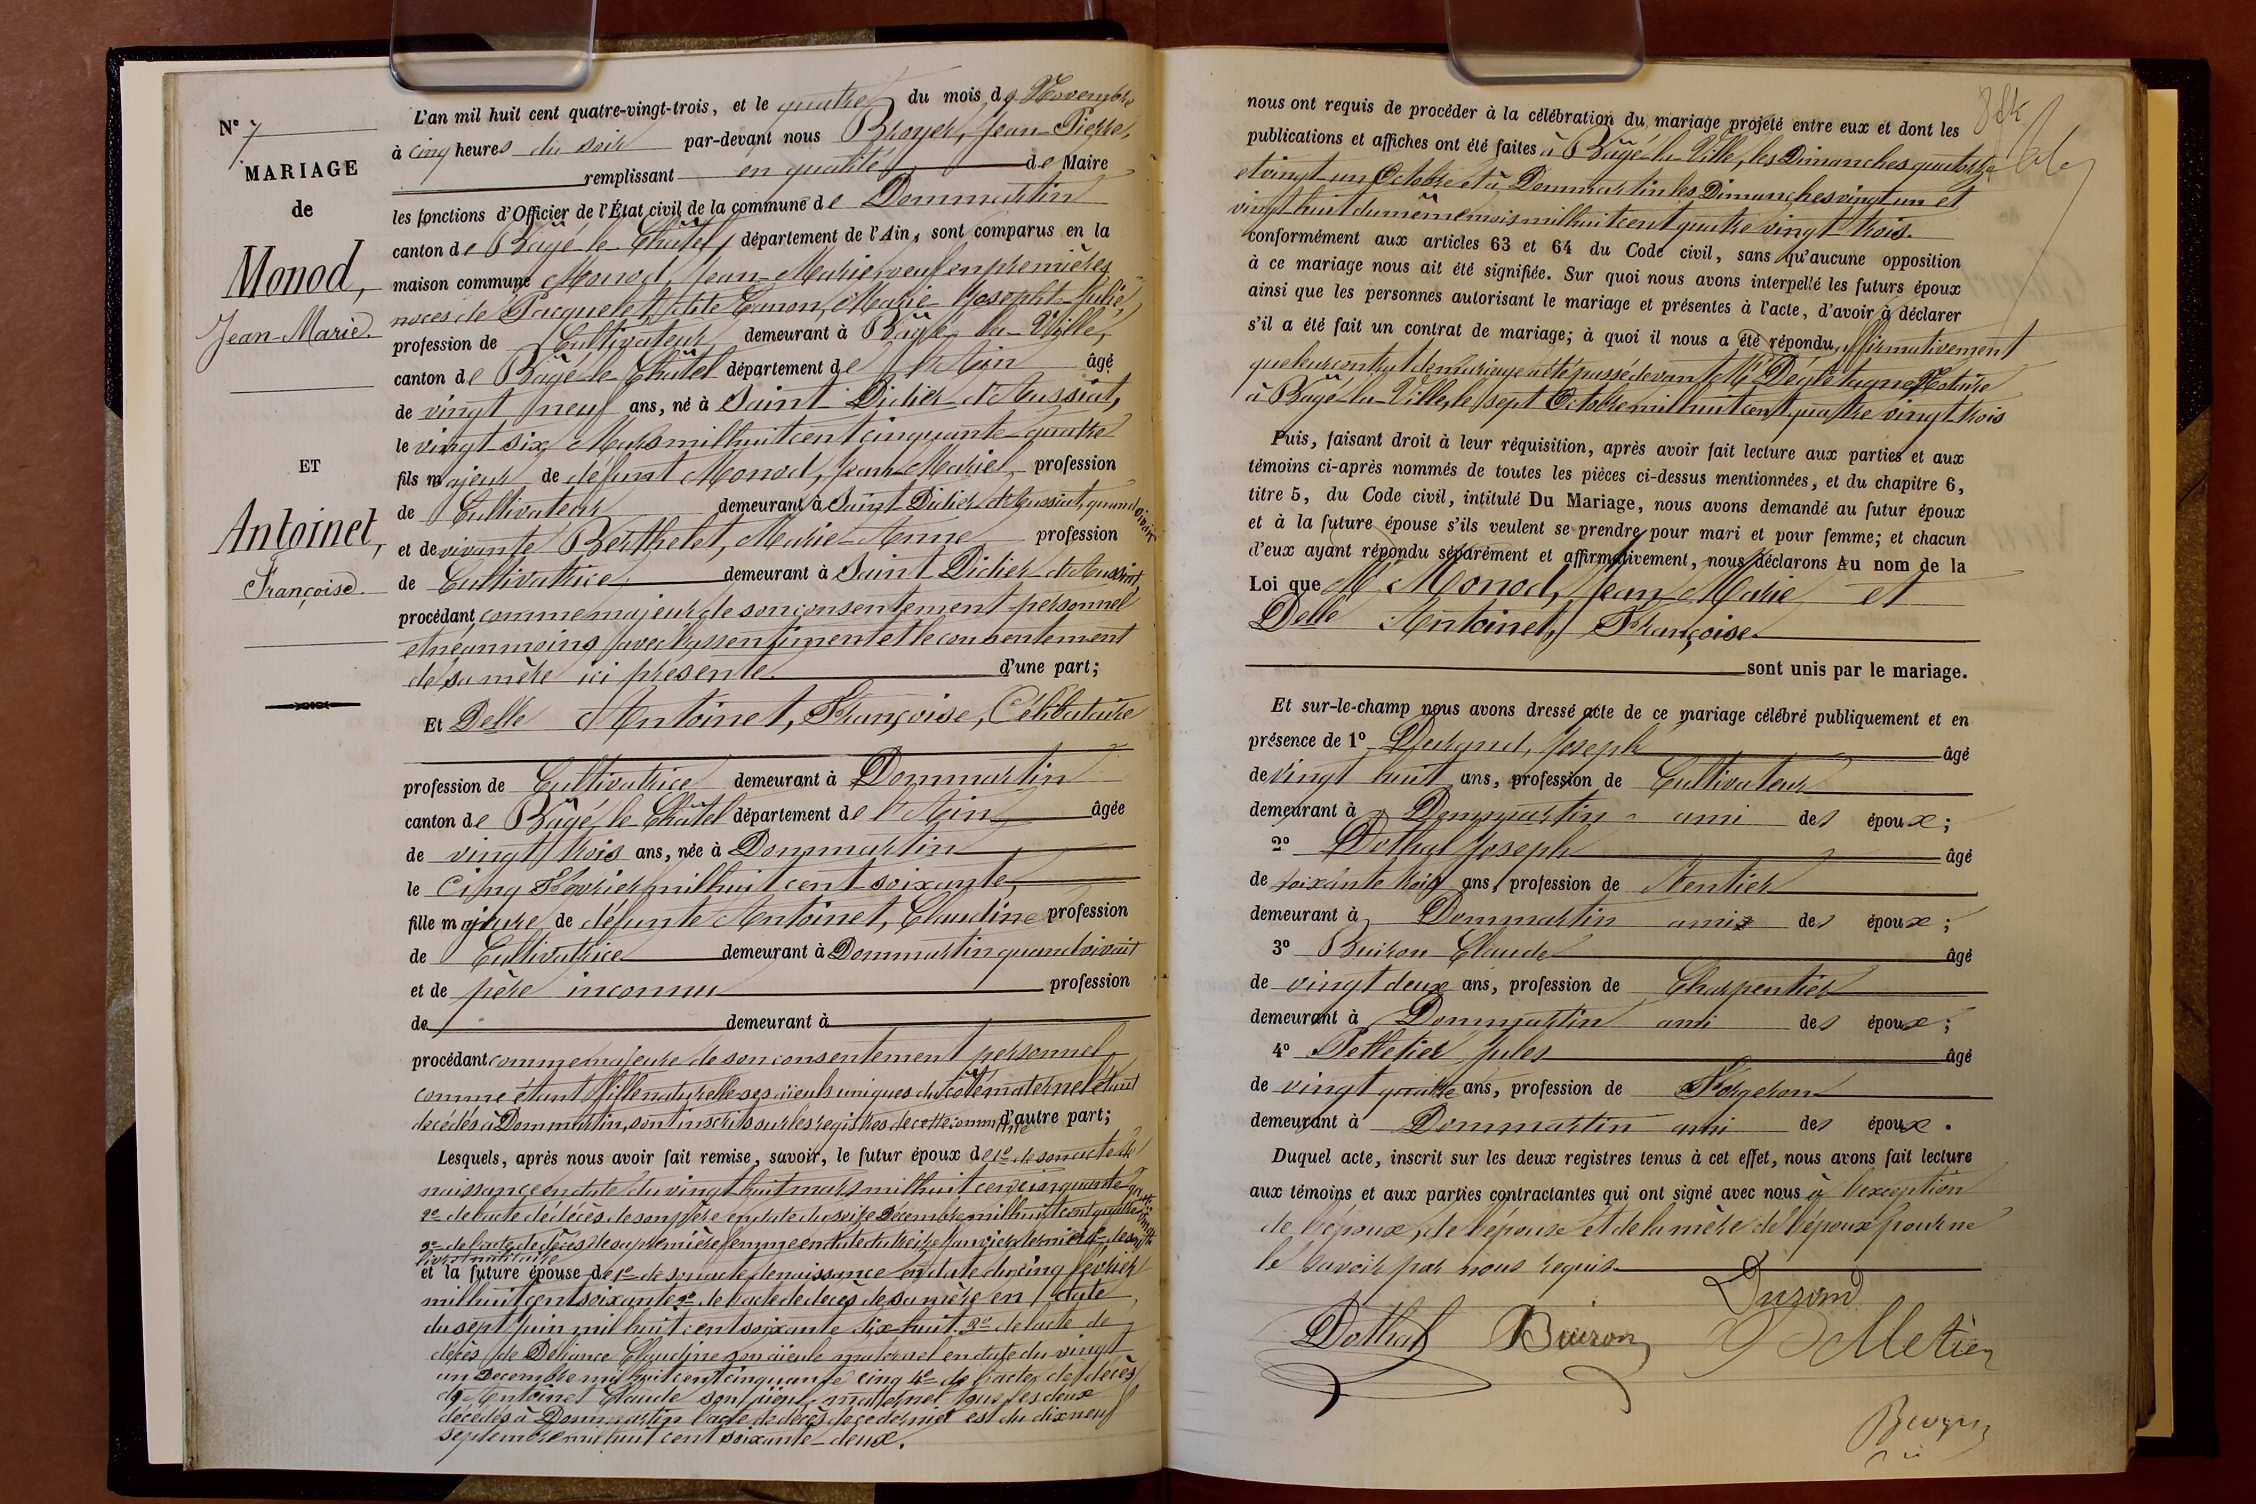 N° 7
MARIAGE
de
Monod,
Jean-Marie.
ET
Antoinet,
Françoise.
L'an mil huit cent quatre-vingt-trois, et le quatre du mois de Novembre
à cinq heures du soir par-devant nous Broyer, Jean-Pierre,
remplissant en qualité de Maire
les fonctions d'Officier de l'État civil de la commune de Dommartin
canton de Bâgé-le-Châtel, département de l'Ain, sont comparus en la
maison commune Monod, Jean-Marie, veuf en premières
noces de Pacquelet, dite Marie Josepht-Julie,
profession de Cultivateur demeurant à Bâgé-la-Ville,
canton de Bâgé-le-Châtel département de l'Ain âgé
de vingt neuf ans, né à Saint-Didier-d'Aussiat,
le vingt-six Mars mil huit cent cinquante-quatre
fils majeur de défunt Monod, Jean-Marie, profession
de Cultivateur demeurant à Saint-Didier-d'Aussiat, quand vivait
et de vivante Berthelet, Marie-Anne profession
de Cultivatrice demeurant à Saint-Didier-d'Aussiat,
procédant comme majeur de son consentement personnel
et néanmoins avec l'assentiment et le consentement
de sa mère ici présente d'une part;
Et Delle Antoinet, Françoise, Célibataire
profession de Cultivatrice demeurant à Dommartin
canton de Bâgé-le-Châtel département de l'Ain âgée
de vingt trois ans, née à Dommartin
le Cinq Février mil huit cent soixante,
fille majeure de défunte Antoinet, Claudine profession
de Cultivatrice demeurant à Dommartin quand vivait
et de père inconnu profession
de demeurant à
procédant comme majeure de son consentement personnel
comme étant fille naturelle ses aïeuls uniques du côté maternel étant
décédés à Dommartin, sont inscrits sur les registres de cette commune d'autre part;
Lesquels, après nous avoir fait remise, savoir, le futur époux de 1° de son acte de
naissance en date du vingt huit mars mil huit cent cinquante quatre
2° de l'acte de décès de son père en date du seize Décembre mil huit cent quatre
3° de l'acte de décès de sa première femme en date du treize Janvier dernier 4° de son
livret militaire
et la future épouse de 1° de son acte de naissance en date du cinq février
mil huit cent soixante 2° de l'acte de décès de sa mère en date
du sept Juin mil huit cent soixante dix huit. 3° de l'acte de
décès de Deliance Claudine son aïeule maternel en date du vingt
un Décembre mil huit cent cinquante cinq 4° de l'acte de décès
de Antoinet Claude son aïeul maternel tous les deux
décédés à Dommartin l'acte de décès de ce dernier est du dix neuf
septembre mil huit cent soixante-deux.
nous ont requis de procéder à la célébration du mariage projeté entre eux et dont les
publications et affiches ont été faites à Bâgé-la-Ville, les Dimanches quatorze
et vingt un Octobre et à Dommartin les Dimanches vingt un et
vingt huit du même mois mil huit cent quatre vingt-trois.
conformément aux articles 63 et 64 du Code civil, sans qu'aucune opposition
à ce mariage nous ait été signifiée. Sur quoi nous avons interpellé les futurs époux
ainsi que les personnes autorisant le mariage et présentes à l'acte, d'avoir à déclarer
s'il a été fait un contrat de mariage; à quoi il nous a été répondu affirmativement
que leur contrat de mariage a été passé devant Me Notaire
à Bâgé-la-Ville, le sept Octobre mil huit cent quatre vingt-trois
Puis, faisant droit à leur réquisition, après avoir fait lecture aux parties et aux
témoins ci-après nommés de toutes les pièces ci-dessus mentionnées, et du chapitre 6,
titre 5, du Code civil, intitulé Du Mariage, nous avons demandé au futur époux
et à la future épouse s'ils veulent se prendre pour mari et pour femme; et chacun
d'eux ayant répondu séparément et affirmativement, nous déclarons Au nom de la
Loi que Mr Monod, Jean-Marie et
Delle Antoinet, Françoise
sont unis par le mariage.
Et sur-le-champ nous avons dressé acte de ce mariage célébré publiquement et en
présence de 1° Durand, Joseph âgé
de vingt huit ans, profession de Cultivateur
demeurant à Dommartin ami des époux;
2° Dothal Joseph âgé
de soixante trois ans, profession de Rentier
demeurant à Dommartin ami des époux;
3° Buiron Claude âgé
de vingt deux ans, profession de Charpentier
demeurant à Dommartin ami des époux;
4° Pelletier Jules âgé
de vingt quatre ans, profession de Forgeron
demeurant à Dommartin ami des époux.
Duquel acte, inscrit sur les deux registres tenus à cet effet, nous avons fait lecture
aux témoins et aux parties contractantes qui ont signé avec nous à l'exception
de l'époux, de l'épouse et de la mère de l'époux pour ne
le savoir par nous requis.
Durand
Dothal Buiron Pelletier
Broyer